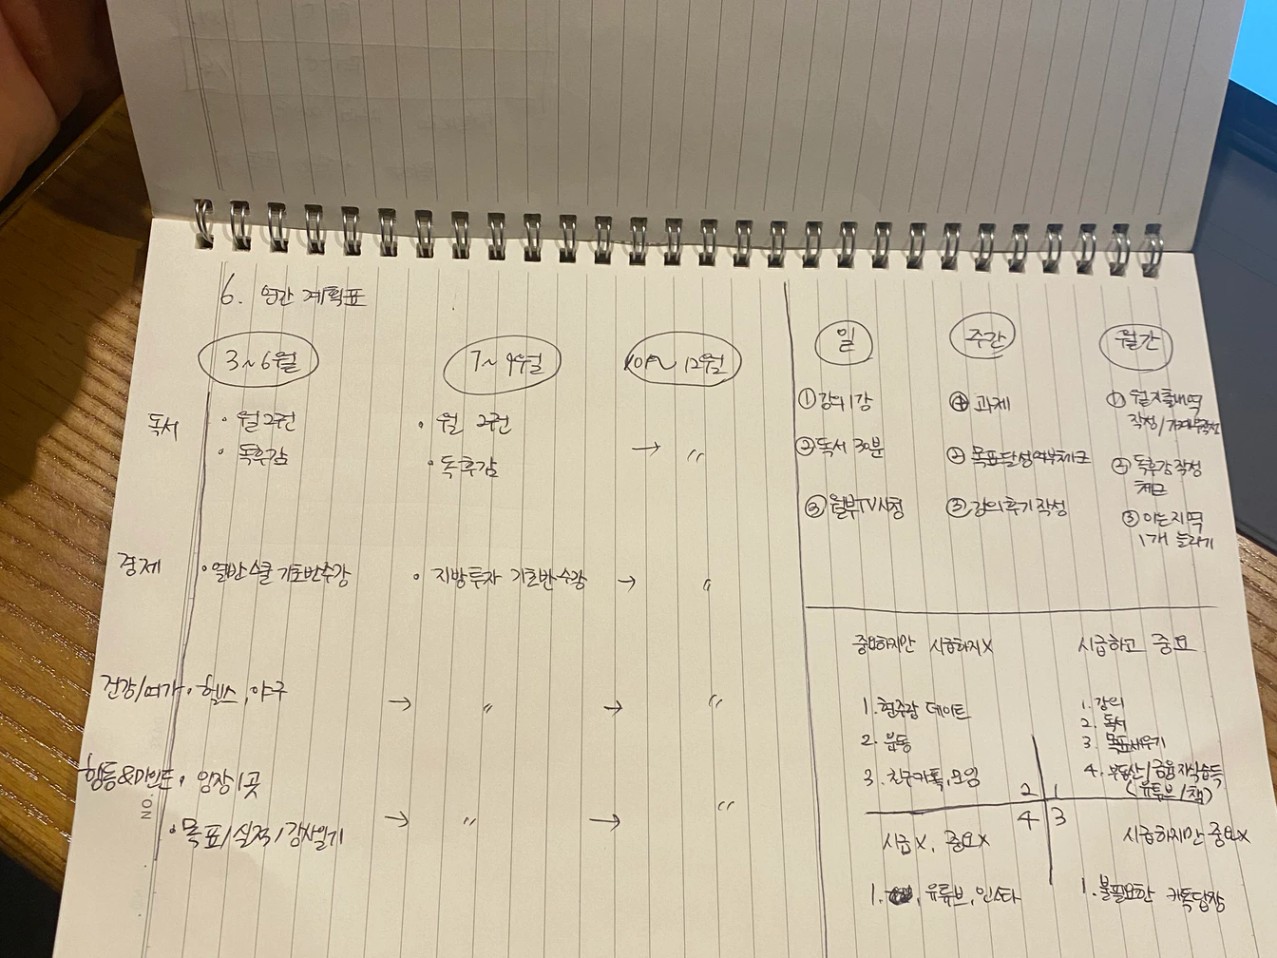 6. 연간 계획표
3~6월
7~9월
10~12월
독서
· 월 2권
· 독후감
· 월 2권
· 독후감
→ 〃
경제
· 열반스쿨 기초반 수강
· 지방투자 기초반 수강
→ 〃
건강/여가
· 헬스, 야구
→ 〃 → 〃
행동&마인드
· 임장 1곳
· 목표/실적/감사일기
→ 〃 → 〃
NO.
일
① 강의 1강
② 독서 30분
③ 월부TV시청
주간
① 과제
② 목표달성여부체크
③ 강의후기작성
월간
① 월지출내역
작성/가계부작성
② 독후감작성
체크
③ 아는지역
1개 늘리기
중요하지만 시급하지X
1. 데이트
2. 운동
3. 친구카톡, 모임
2
시급하고 중요
1. 강의
2. 독서
3. 목표세우기
4. 부동산/금융지식습득
(유튜브/책)
1
4
시급X, 중요X
1. 유튜브, 인스타
3
시급하지만 중요X
1. 불필요한 카톡답장